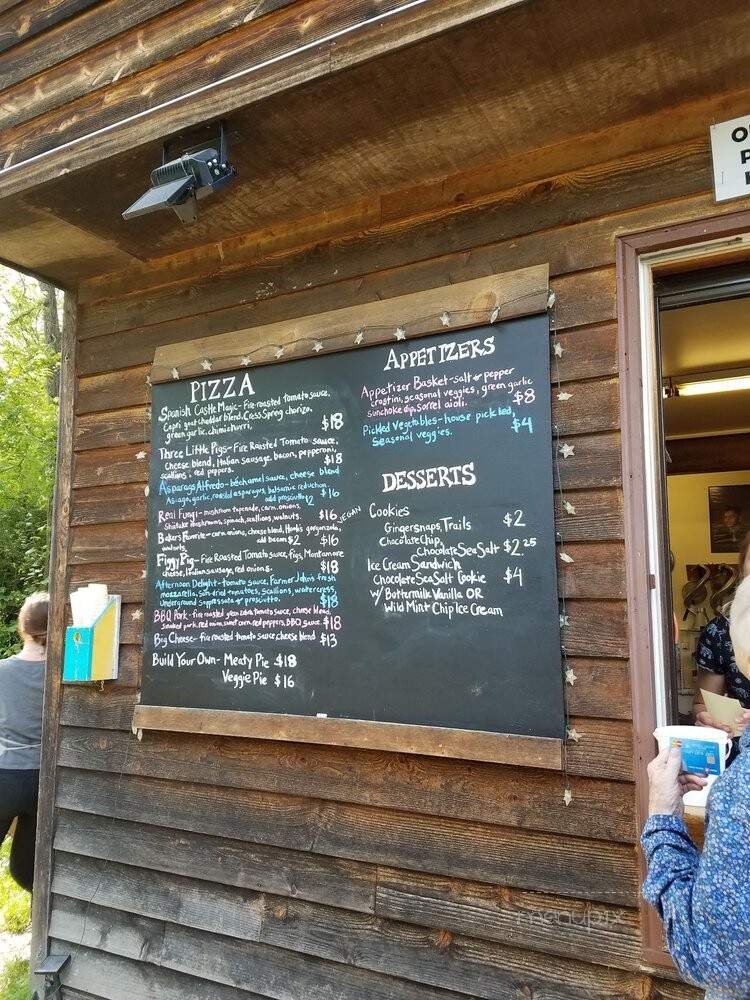 PIZZA
Spanish Castle Magic - fire-roasted tomato sauce,
Capri goat cheddar blend, Cass Spring chorizo,
green garlic, chimichurri, $18
Three Little Pigs - Fire Roasted Tomato sauce,
cheese blend, Italian sausage, bacon, pepperoni,
scallions & red peppers. $18
Asparagus Alfredo - béchamel sauce, cheese blend
Asiago, garlic, roasted asparagus, balsamic reduction.
add prosciutto $2 $16
Real Fungi - mushroom tapenade, corn, onions,
Shiitake mushrooms, spinach, scallions, walnuts. $16
VEGAN
Bakers Favorite - corn, onions, cheese blend, gorgonzola,
walnuts. add bacon $2 $16
Figgy Pig - Fire Roasted Tomato sauce, figs, Montamore
cheese, Italian sausage, red onions. $18
Afternoon Delight - tomato sauce, Farmer John's fresh
mozzarella, sun-dried tomatoes, scallions, watercress,
Underground soppressata or prosciutto. $18
BBQ Pork - fire roasted tomato sauce, cheese blend,
Smoked pork, red onion, sweet corn, red peppers, BBQ sauce. $18
Big Cheese - fire roasted tomato sauce, cheese blend $13
Build Your Own - Meaty Pie $18
Veggie Pie $16
APPETIZERS
Appetizer Basket - salt or pepper
crostini, seasonal veggies, green garlic
sunchoke dip, Sorrel aioli. $8
Pickled Vegetables - house pickled,
seasonal veggies. $4
DESSERTS
Cookies
Gingersnaps, Trails $2
Chocolate Chip,
Chocolate Sea Salt $2.25
Ice Cream Sandwich
Chocolate Sea Salt Cookie $4
w/ Buttermilk Vanilla OR
Wild Mint Chip Ice Cream
menupix